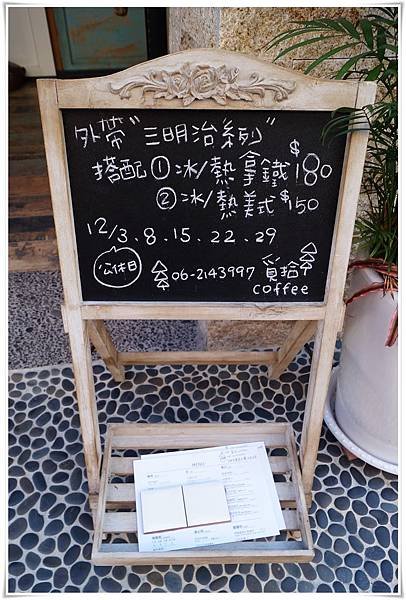 外帶"三明治系列"
搭配①冰/熱拿鐵$180
②冰/熱美式$150
12/3、8、15、22、29
公休日 06-2143997 覓拾
coffee
MENU